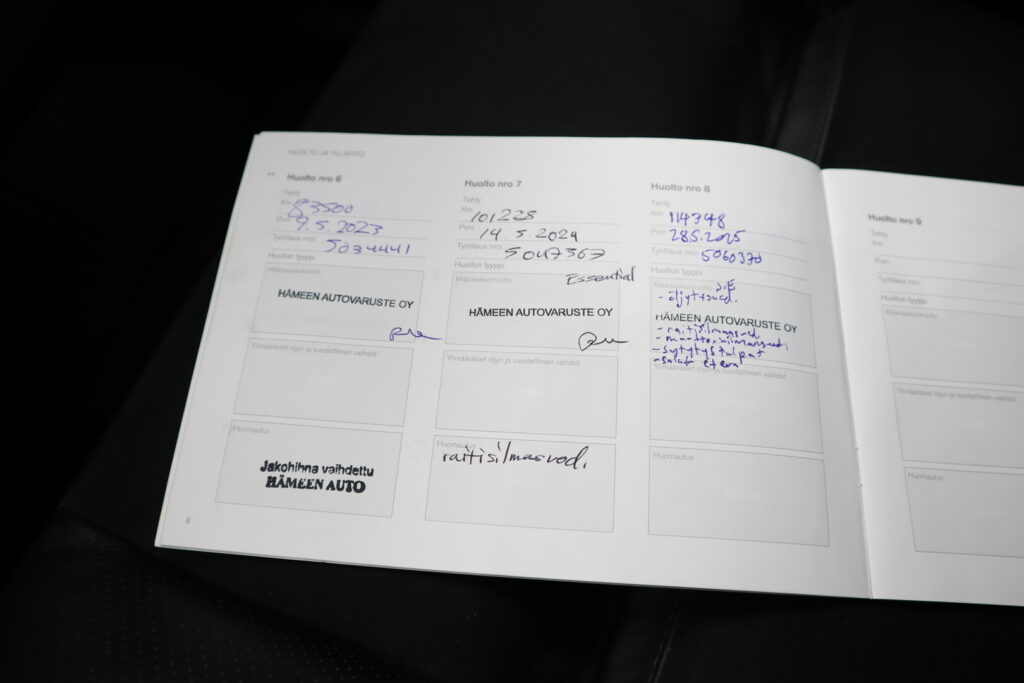 HUOLTO JA YLLÄPITO
Huolto nro 6
Tehty
Km 83500
Pvm 9.5.2023
Työtilaus nro: 5034441
Huollon tyyppi
Määräaikaishuolto
HÄMEEN AUTOVARUSTE OY
Ylimääräiset öljyn ja suodattimen vaihdot
Huomautus
Jakohihna vaihdettu
HÄMEEN AUTO
8
Huolto nro 7
Tehty
Km 101228
Pvm 14.5.2024
Työtilaus nro: 5047367
Huollon tyyppi
Essential
Määräaikaishuolto
HÄMEEN AUTOVARUSTE OY
Ylimääräiset öljyn ja suodattimen vaihdot
Huomautus
raitisilmasuod.
Huolto nro 8
Tehty
Km 114748
Pvm 28.5.2025
Työtilaus nro: 5060370
Huollon tyyppi
Määräaikaishuolto
- öljyt+suod.
HÄMEEN AUTOVARUSTE OY
- raitisilmasuod.
- moottorinilmansuod.
- sytytystulpat
Ylimääräiset öljyn ja suodattimen vaihdot
Huomautus
Huolto nro 9
Tehty
Km
Pvm
Työtilaus nro:
Huollon tyyppi
Määräaikaishuolto
Ylimääräiset öljyn ja suodattimen vaihdot
Huomautus